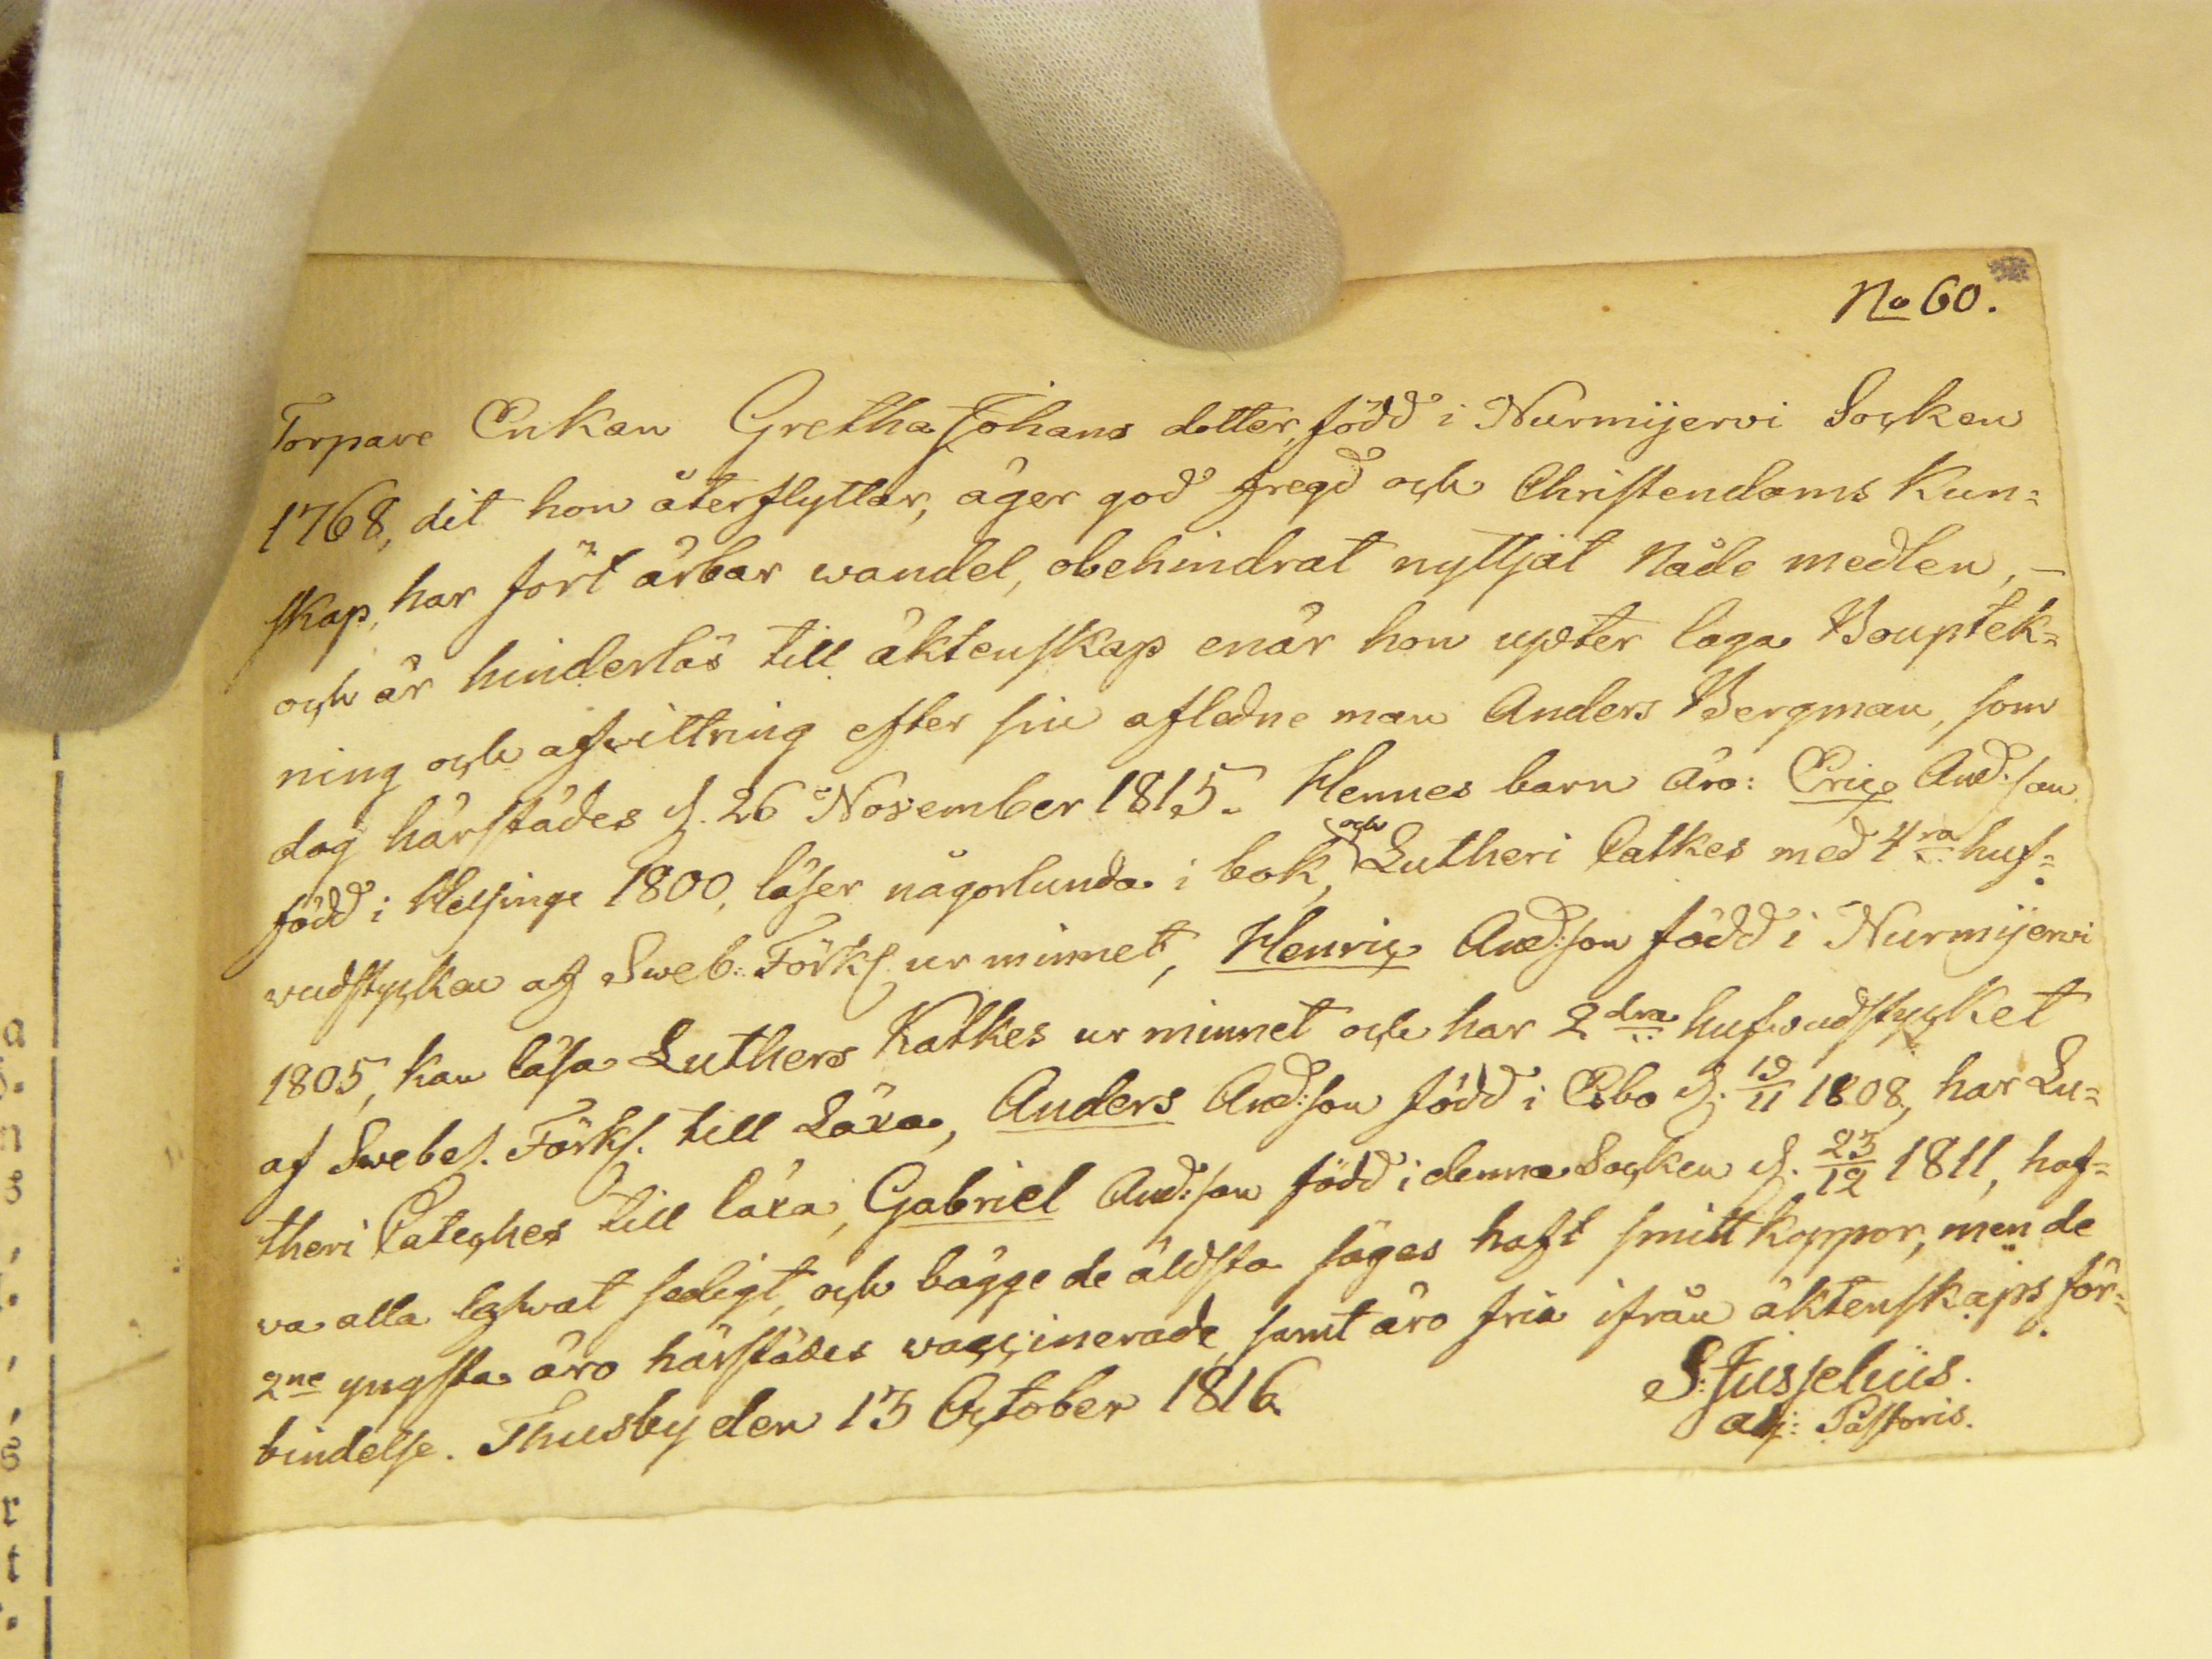 No 60.
Torpare Enkan Gretha Johans dotter, född i Nurmijervi Socken
1768, dit hon återflyttar, äger god fregd och Christendoms Kun=
skap, har fört ärbar wandel, obehindrat nyttjat Nåde medlen, –
och är hinderlös till äktenskap enär hon upter laga Bouptek=
ning och afwittring efter sin afledne man Anders Bergman, som
dog härstädes d. 26 November 1815. Hennes barn äro: Eric And:son
född i Helsinge 1800, läser någorlunda i bok, och Lutheri Catkes med 4ra huf=
wudstycken af Sweb: Förkl. ur minnet, Henric And:son född i Nurmijervi
1805, kan läsa Luthers Katkes ur minnet och har 2dra hufwudstycket
af Swebel. Förkl. till Läxa, Anders And:son född i Esbo d. 19/11 1808, har Lu=
theri Cateches till läxa, Gabriel And:son född i denna Socken d. 23/12 1811, haf=
wa alla lefwat sedligt, och bägge de äldsta säges haft smittkoppor, men de
2ne yngsta äro härstädes waccinerade, samt äro fria ifrån äktenskaps för=
bindelse. Thusby den 13 October 1816.
S: Jusselius.
adj: Pastoris.
a
n
8
,
,
,
8
r
t